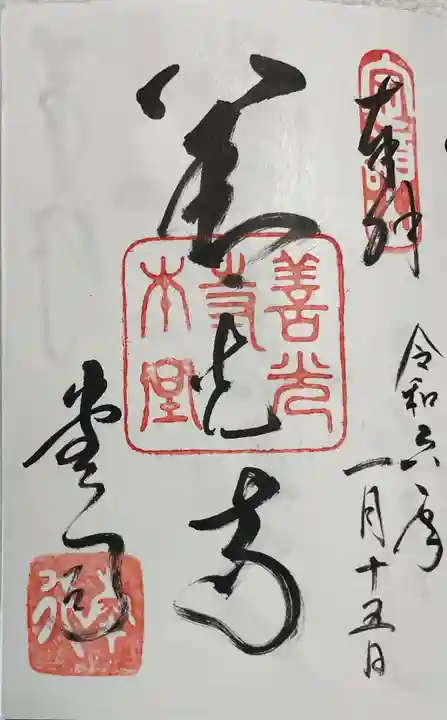 奉拝
令和六年
一月十五日
善光寺
善光
寺
本堂
堂司